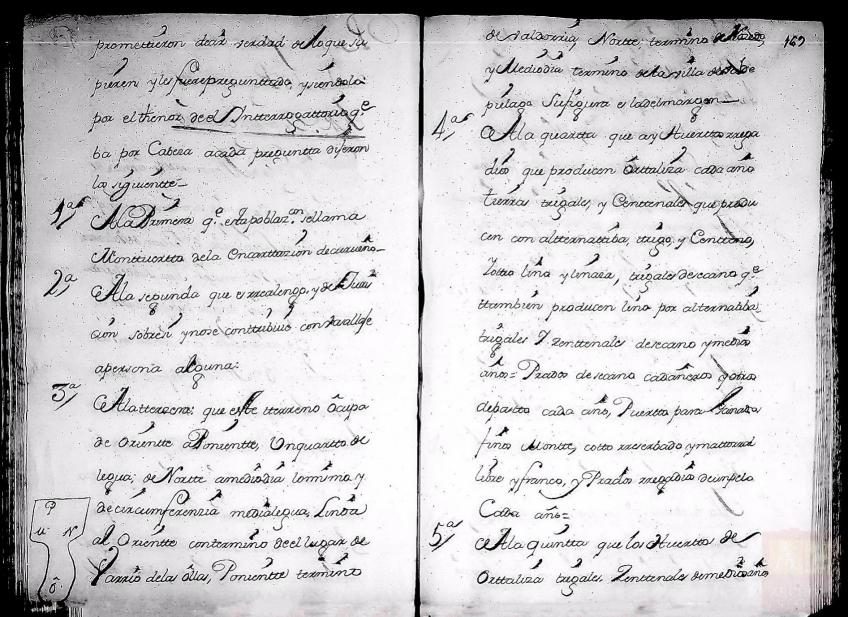 prometieron decir verdad de lo que su
pieren y les fuere preguntado, y siendolo
por el thenor de el Ynterrogattorio q.e
ba por Cabeza acada pregunta dijeron
lo siguiente
1a/ Ala Primera q.e esta poblaz.on se llama
Monttuerto dela Encarttazion de curueño
2a/ Ala segunda que es rrealengo, y de Juris
cion sobresi y nose conttribuie con vasallaje
apersona alguna:
3a/ Alatterzera; que este tterreno ôcupa
de Orientte aPonientte, Unquartto de
legua; de Nortte amediodia lomismo y
de circumferenzia medialegua, Linda
al Orientte contermino deel lugar de
Varrio delas ôllas, Ponientte termino
P
U N
O
169
de Valdorria, Nortte termino de
y Mediodia termino dela villa de
pielago Sufigura es la del margen
4a/ Ala quartta que ay Huerttos rrega
dios que producen Orttaliza cada año
tierras trigales, y Centtenales que produ
cen con altternattiba, trigo, y Centteno,
Zotto lino y linaza, trigales desecano q.e
ttambien producen lino por alternatiba
trigales Y Zenttenales desecano ymedios
años= Prados desecano cadañeros y otros
depastto cada año, Puertto para Ganado
fino Montte, cotto rreserbado ymattorral
libre y franco, y Prados rregadio deunpelo
Cada año=
5a/ Ala quintta que los Huerttos de
Orttaliza trigales, Zenttenales demedioaño